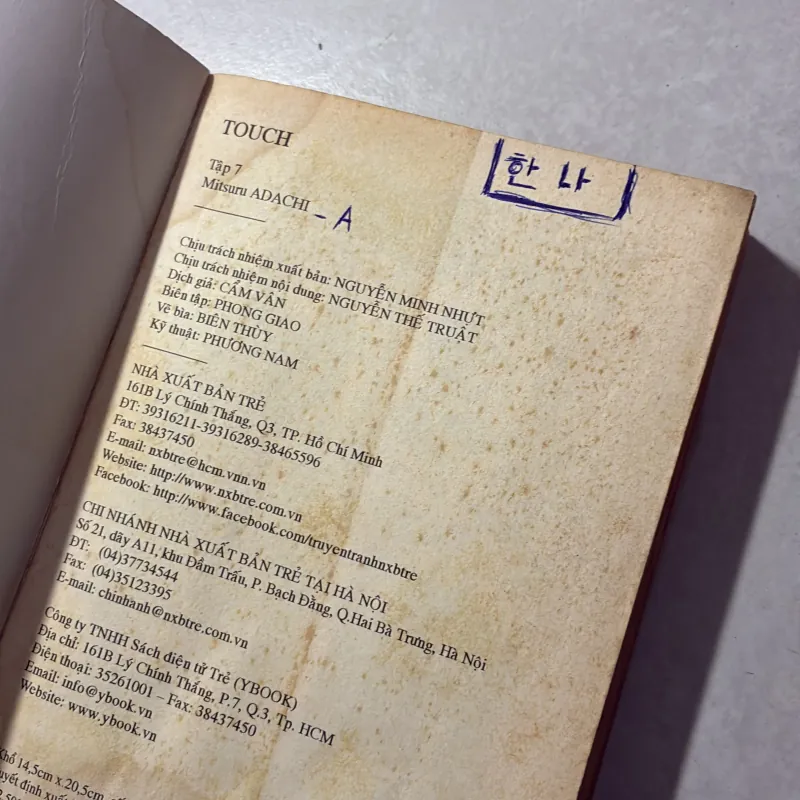 TOUCH
한나
Tập 7
Mitsuru ADACHI - A
Chịu trách nhiệm xuất bản: NGUYỄN MINH NHỰT
Chịu trách nhiệm nội dung: NGUYỄN THẾ TRUẬT
Dịch giả: CẨM VÂN
Biên tập: PHONG GIAO
Vẽ bìa: BIÊN THÙY
Kỹ thuật: PHƯƠNG NAM
NHÀ XUẤT BẢN TRẺ
161B Lý Chính Thắng, Q3, TP. Hồ Chí Minh
ĐT: 39316211-39316289-38465596
Fax: 38437450
E-mail: nxbtre@hcm.vnn.vn
Website: http://www.nxbtre.com.vn
Facebook: http://www.facebook.com/truyentranhnxbtre
CHI NHÁNH NHÀ XUẤT BẢN TRẺ TẠI HÀ NỘI
Số 21, dãy A11, khu Đầm Trấu, P. Bạch Đằng, Q.Hai Bà Trưng, Hà Nội
ĐT: (04)37734544
Fax: (04)35123395
E-mail: chinhanh@nxbtre.com.vn
Công ty TNHH Sách điện tử Trẻ (YBOOK)
Địa chỉ: 161B Lý Chính Thắng, P.7, Q.3, Tp. HCM
Điện thoại: 35261001 – Fax: 38437450
Email: info@ybook.vn
Website: www.ybook.vn
Khổ 14,5cm x 20,5cm